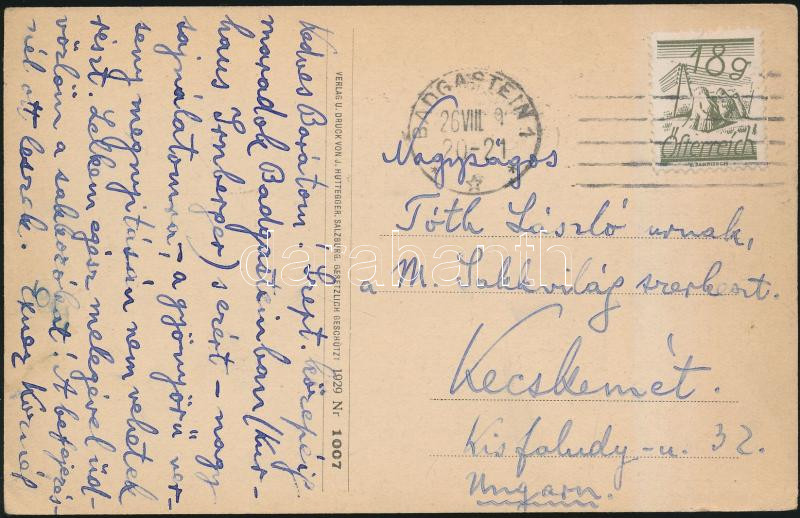 Kedves Barátom! Szept. közepéig
maradok Badgasteinban (Kur-
haus Irnberger) s ezért – nagy
sajnálatomra, – a gyönyörü ver-
seny megnyitásán nem vehetek
részt. Lelkem egész melegével üd-
vözlöm a sakkozókat! A befejezés-
nél ott leszek.
Exner Kornél
VERLAG U. DRUCK VON J. HUTTEGGER, SALZBURG. GESETZLICH GESCHÜTZT! 1929 Nr. 1007
BADGASTEIN 1
26 VIII 9
20-21
18g
Österreich
Nagyságos
Tóth László urnak,
a M. Sakkvilág szerkeszt.
Kecskemét.
Kisfaludy-u. 32.
Ungarn.
darabanth